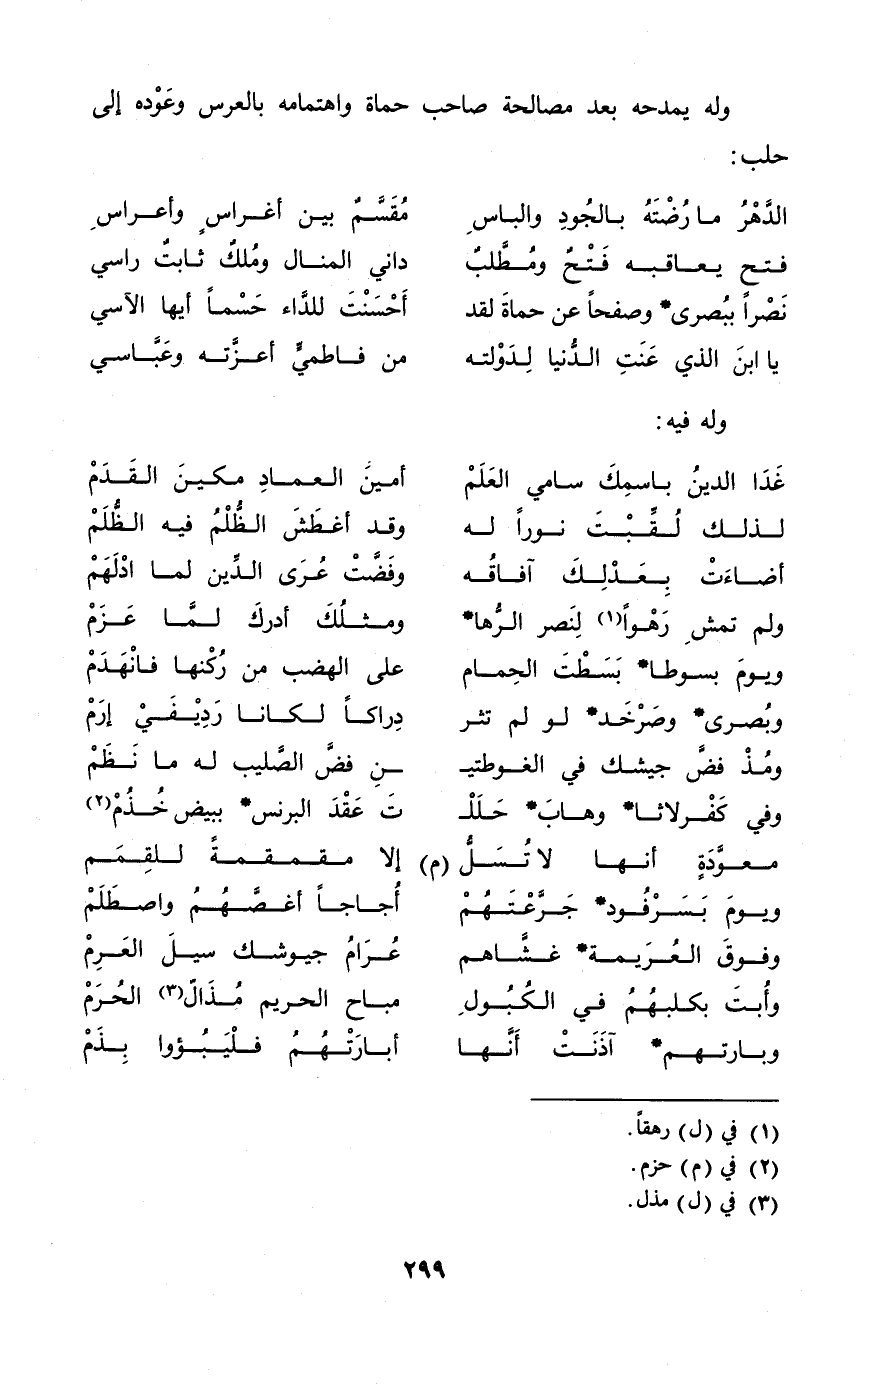 وله يمدحه بعد مصالحة صاحب حماة واهتمامه بالعرس وعَوْده إلى
حلب:
الدَّهْرُ ما رُضْتَهُ بالجُودِ والباسِ مُقَسَّمٌ بين أغراسٍ وأعراسِ
فتح يعاقبه فَتْحٌ ومُطَّلبٌ داني المنال ومُلكٌ ثابتٌ راسي
نَصْراً ببُصرى* وصفحاً عن حماةَ لقد أَحْسَنْتَ للدَّاء حَسْماً أيها الآسي
يا ابنَ الذي عَنَتِ الدُّنيا لِدَوْلته من فاطميٍّ أعزَّته وعَبَّاسي
وله فيه:
غَدَا الدينُ باسمِكَ سامي العَلَمْ أمينَ العمادِ مكينَ القَدَمْ
لذلك لُقِّبْتَ نوراً له وقد أغطَشَ الظُّلْمُ فيه الظُّلَمْ
أضاءَتْ بِعَدْلِكَ آفاقُه وفَضَّتْ عُرَى الدِّين لما ادْلَهَمْ
ولم تمشِ رَهْواً(١) لِنَصر الرُّها* ومثلُكَ أدركَ لمَّا عَزَمْ
ويومَ بسوطا* بَسَطْتَ الحِمام على الهضب من رُكْنها فانْهَدَمْ
وبُصرى* وصَرْخَد* لو لم تثر دِراكاً لكانا رَدِيْفَيْ إرَمْ
ومُذْ فضَّ جيشك في الغوطتيـ ـن فضَّ الصَّليب له ما نَظَمْ
وفي كَفْرلاثا* وهابَ* حَلَلْـ تَ عَقْدَ البرنس* ببيض خُذُمْ(٢)
معوَّدَةٍ أنها لا تُسَلُّ (م) إلا مقمقمةً للقِمَم
ويومَ بَسَرْفُود* جَرَّعْتَهُمْ أُجاجاً أغصَّهُمُ واصطَلَمْ
وفوقَ العُرَيمة* غشَّاهم عُرَامُ جيوشك سيلَ العَرِمْ
وأُبتَ بكلبهُمُ في الكُبُولِ مباح الحريم مُذَالّ(٣) الحُرَمْ
وبارتهم* آذَنَتْ أنَّها أبارَتْهُمُ فلْيَبُؤوا بِذَمْ
(١) في (ل) رهقاً.
(٢) في (م) حزم.
(٣) في (ل) مذل.
٢٩٩